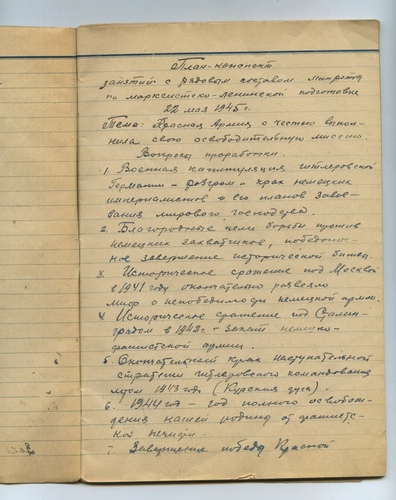 План-конспект
занятий с рядовым составом минрота
по марксистско-ленинской подготовке
22 мая 1945 г.
Тема: Красная Армия с честью выпол-
нила свою освободительную миссию.
Вопросы проработки.
1. Военная капитуляция гитлеровской
Германии - разгром и крах немецких
империалистов и его планов завое-
вания мирового господства.
2. Благородные цели борьбы против
немецких захватчиков, победонос-
ное завершение исторической битвы.
3. Историческое сражение под Москвой
в 1941 году окончательно развеяло
миф о непобедимости немецкой армии.
4. Историческое сражение под Сталин-
градом в 1942 г - закат немецко-
фашистской армии.
5. Окончательный крах наступательной
стратегии гитлеровского командования
летом 1943 года (Курская дуга).
6. 1944 год - год полного освобож-
дения нашей родины от фашистс-
кой нечисти.
7. Завершение победы Красной